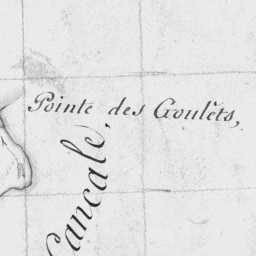 Pointe des Goulets,
Cancale,